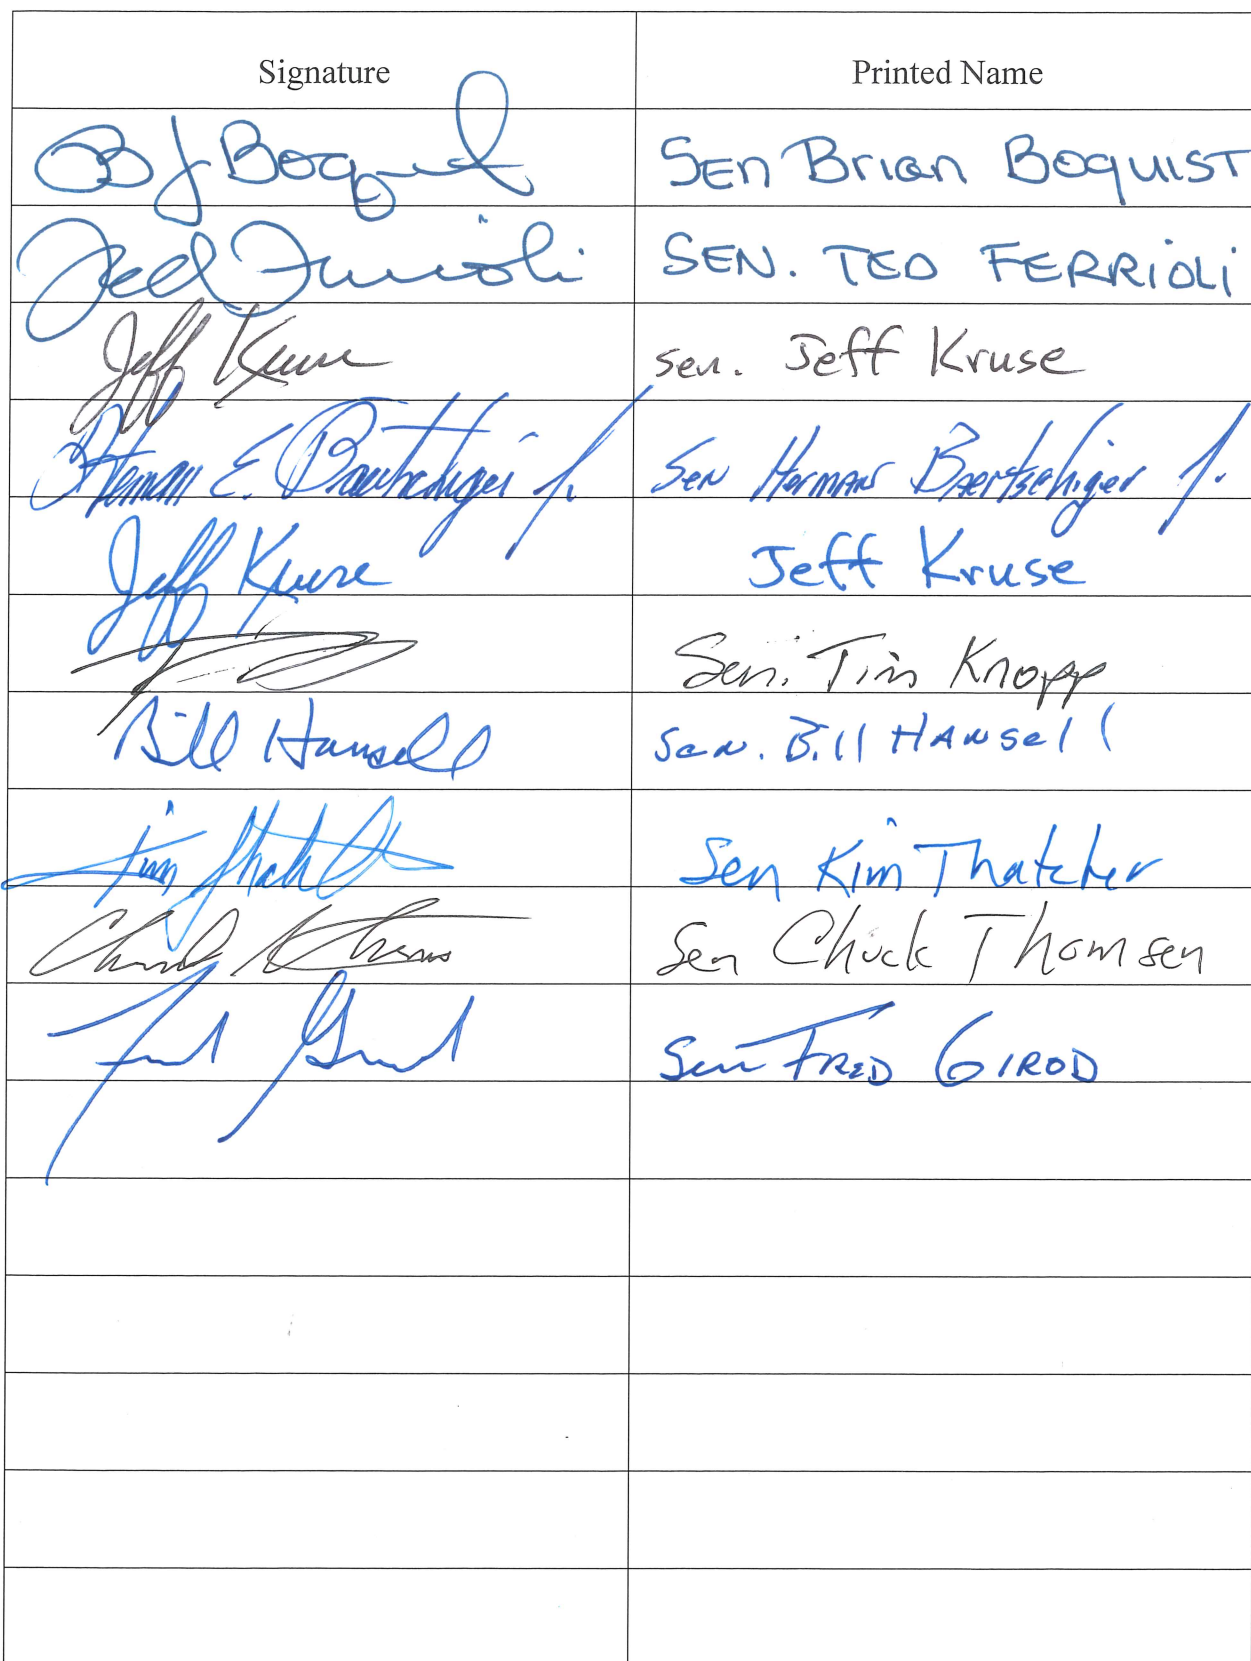 Signature Printed Name
BJ Boquist SEn Brian BOQUIST
Ted Ferrioli SEN. TED FERRIOLI
Jeff Kruse Sen. Jeff Kruse
Herman E. Baertschiger Jr. Sen Herman Baertschiger Jr.
Jeff Kruse Jeff Kruse
Sen. Tim Knopp
Bill Hansell Sen. Bill HANsell
Kim Thatcher Sen Kim Thatcher
Chuck Thomsen Sen Chuck Thomsen
Fred Girod Sen FRED GIROD